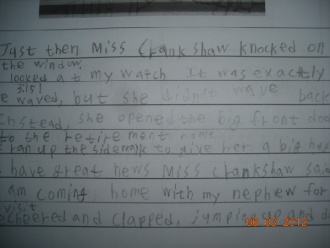 Just then Miss Crankshaw knocked on
the window.
I looked at my watch It was exactly
3:15!
e waved, but she didn't wave back
Instead, she opened the big front doo
to the retirement home.
I ran up the sidewalk to give her a big hug
have great news Miss Crankshaw said
am coming home with my nephew for
visit
cheered and clapped, jumping up and do